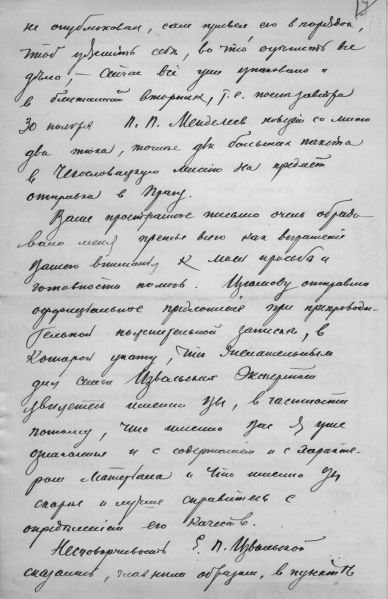 не опубликован, сам привел его в порядок,
чтоб уяснить себе, во что оценить все
дело — Сейчас всё уже упаковано и
в ближайший вторник, т.е. послезавтра
30 ноября П. П. Менделеев повезет со мною
два тюка, точнее два больших пакета
в Чехословацкую миссию на предмет
отправки в Прагу.
Ваше пространное письмо очень обрадо
вало меня прежде всего как выражение
Вашего внимания к моей просьбе и
готовности помочь. Изюмову отправляю
официальное предложение при препроводи-
тельной пояснительной записке, в
которой укажу, что желательным
для семьи Извольских экспертом
являетесь именно Вы, в частности
потому, что именно Вас я уже
ознакомил и с содержанием и с характе-
ром материала и что именно Вы
скорее и лучше справитесь с
определением его качеств.
Несговорчивость Е. П. Извольской
сказалась, главным образом, в пункте